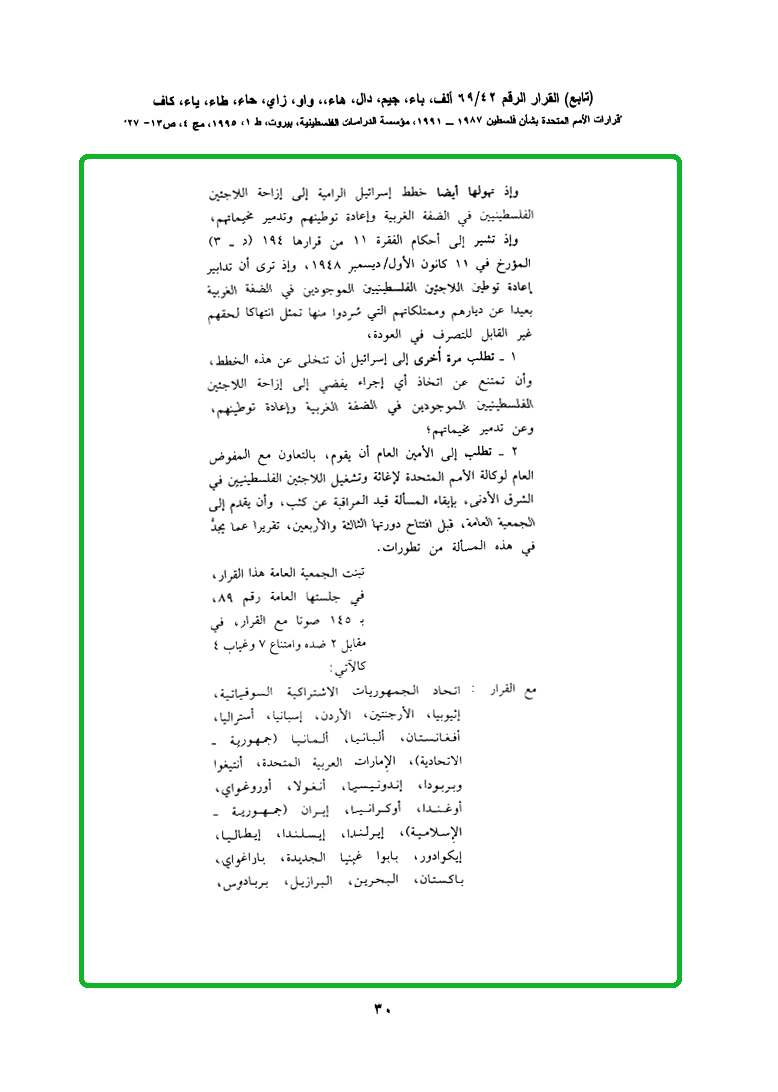 (تابع) القرار الرقم ٦٩/٤٢ ألف، باء، جيم، دال، هاء،، واو، زاي، حاء، طاء، ياء، كاف
"قرارات الأمم المتحدة بشأن فلسطين ١٩٨٧ ــ ١٩٩١، مؤسسة الدراسات الفلسطينية، بيروت، ط ١، ١٩٩٥، مج ٤، ص١٣- ٢٧"
وإذ تهولها أيضا خطط إسرائيل الرامية إلى إزاحة اللاجئين
الفلسطينيين في الضفة الغربية وإعادة توطينهم وتدمير مخيماتهم،
وإذ تشير إلى أحكام الفقرة ١١ من قرارها ١٩٤ (د ـ ٣)
المؤرخ في ١١ كانون الأول/ديسمبر ١٩٤٨، وإذ ترى أن تدابير
إعادة توطين اللاجئين الفلسطينيين الموجودين في الضفة الغربية
بعيدا عن ديارهم وممتلكاتهم التي شُردوا منها تمثل انتهاكا لحقهم
غير القابل للتصرف في العودة،
١ ـ تطلب مرة أُخرى إلى إسرائيل أن تتخلى عن هذه الخطط،
وأن تمتنع عن اتخاذ أي إجراء يفضي إلى إزاحة اللاجئين
الفلسطينيين الموجودين في الضفة الغربية وإعادة توطينهم،
وعن تدمير مخيماتهم؛
٢ ـ تطلب إلى الأمين العام أن يقوم، بالتعاون مع المفوض
العام لوكالة الأمم المتحدة لإغاثة وتشغيل اللاجئين الفلسطينيين في
الشرق الأدنى، بإبقاء المسألة قيد المراقبة عن كثب، وأن يقدم إلى
الجمعية العامة، قبل افتتاح دورتها الثالثة والأربعين، تقريرا عما يجدُّ
في هذه المسألة من تطورات.
تبنت الجمعية العامة هذا القرار،
في جلستها العامة رقم ٨٩،
بـ ١٤٥ صوتا مع القرار، في
مقابل ٢ ضده وامتناع ٧ وغياب ٤
كالآتي:
مع القرار : اتحاد الجمهوريات الاشتراكية السوفياتية،
إثيوبيا، الأرجنتين، الأردن، إسبانيا، أستراليا،
أفغانستان، ألبانيا، ألمانيا (جمهورية ـ
الاتحادية)، الإمارات العربية المتحدة، أنتيغوا
وبربودا، إندونيسيا، أنغولا، أوروغواي،
أوغندا، أوكرانيا، إيران (جمهورية ـ
الإسلامية)، إيرلندا، إيسلندا، إيطاليا،
إيكوادور، بابوا غينيا الجديدة، باراغواي،
باكستان، البحرين، البرازيل، بربادوس،
٣٠